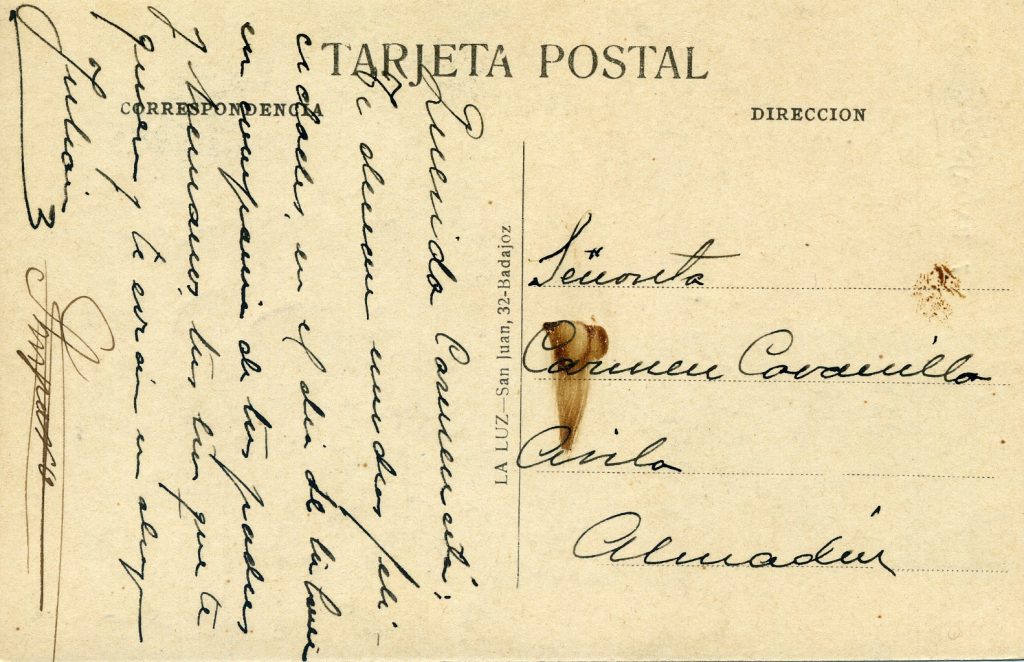 TARJETA POSTAL
CORRESPONDENCIA
Querida Carmencita:
Te desean muchas feli-
cidades, en el dia de tu
en compania de tus padres
y hermanos, tus tios que te
quieren y te envian un abrazo
Julian
Amparo
LA LUZ—San Juan, 32-Badajoz
DIRECCION
Señorita
Carmen Cavanilla
Avila
Almadén